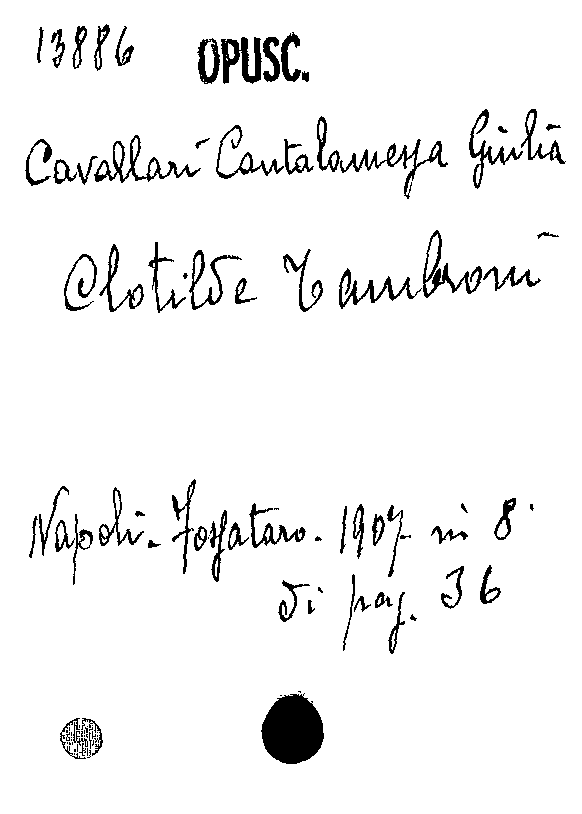 13886 OPUSC.
Cavallari Cantalamessa Giulia
Clotilde Tambroni
Napoli. Fosfataro. 1907 in 8.
di pag. 36